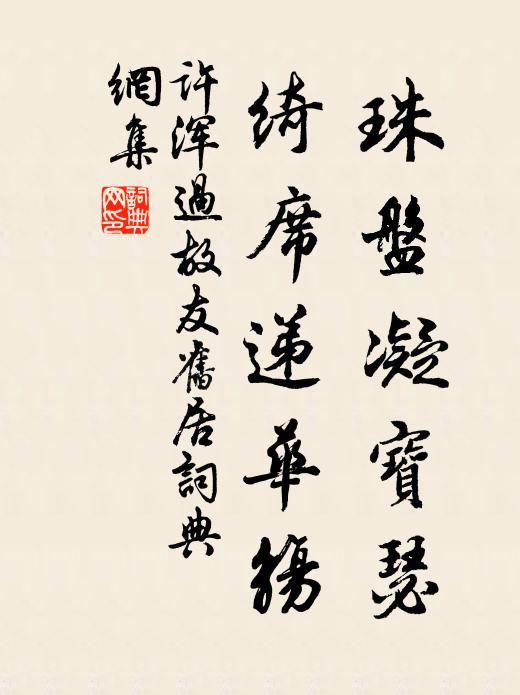 珠盤凝寶瑟
綺席遞華觴
許渾過故友舊居詞典
網集
詞典
网印